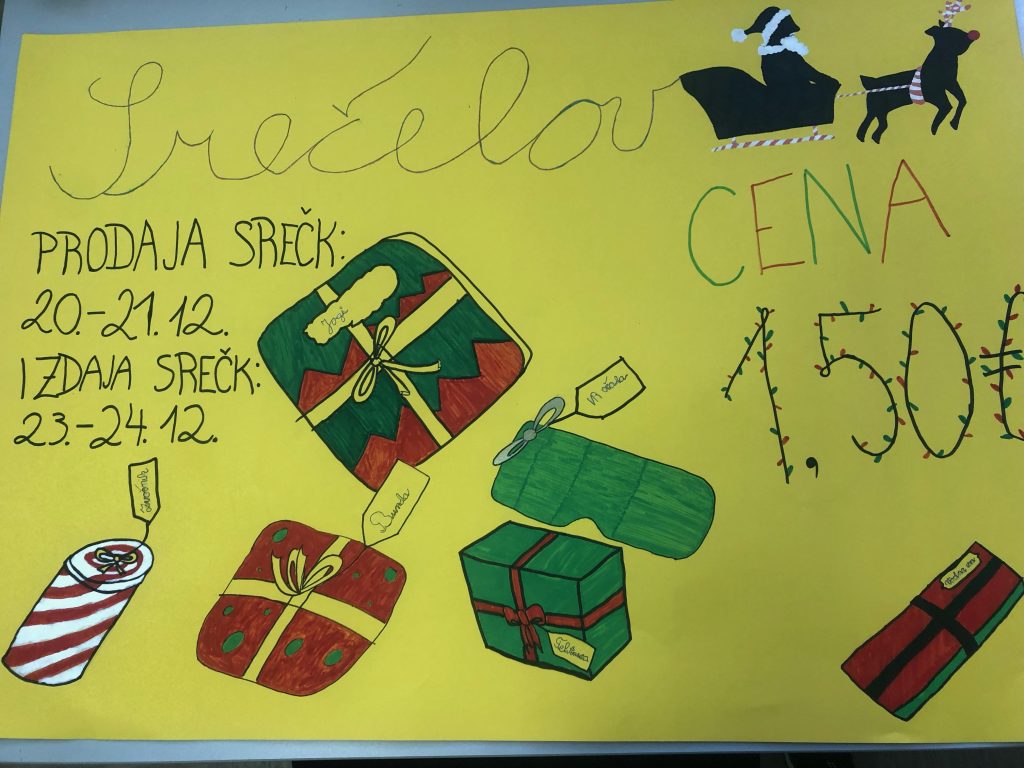 Srečelov
CENA
1,50€
PRODAJA SREČK:
20.-21.12.
IZDAJA SREČK:
23.-24.12.
Jogi
VR očala
Zvočnik
Bunda